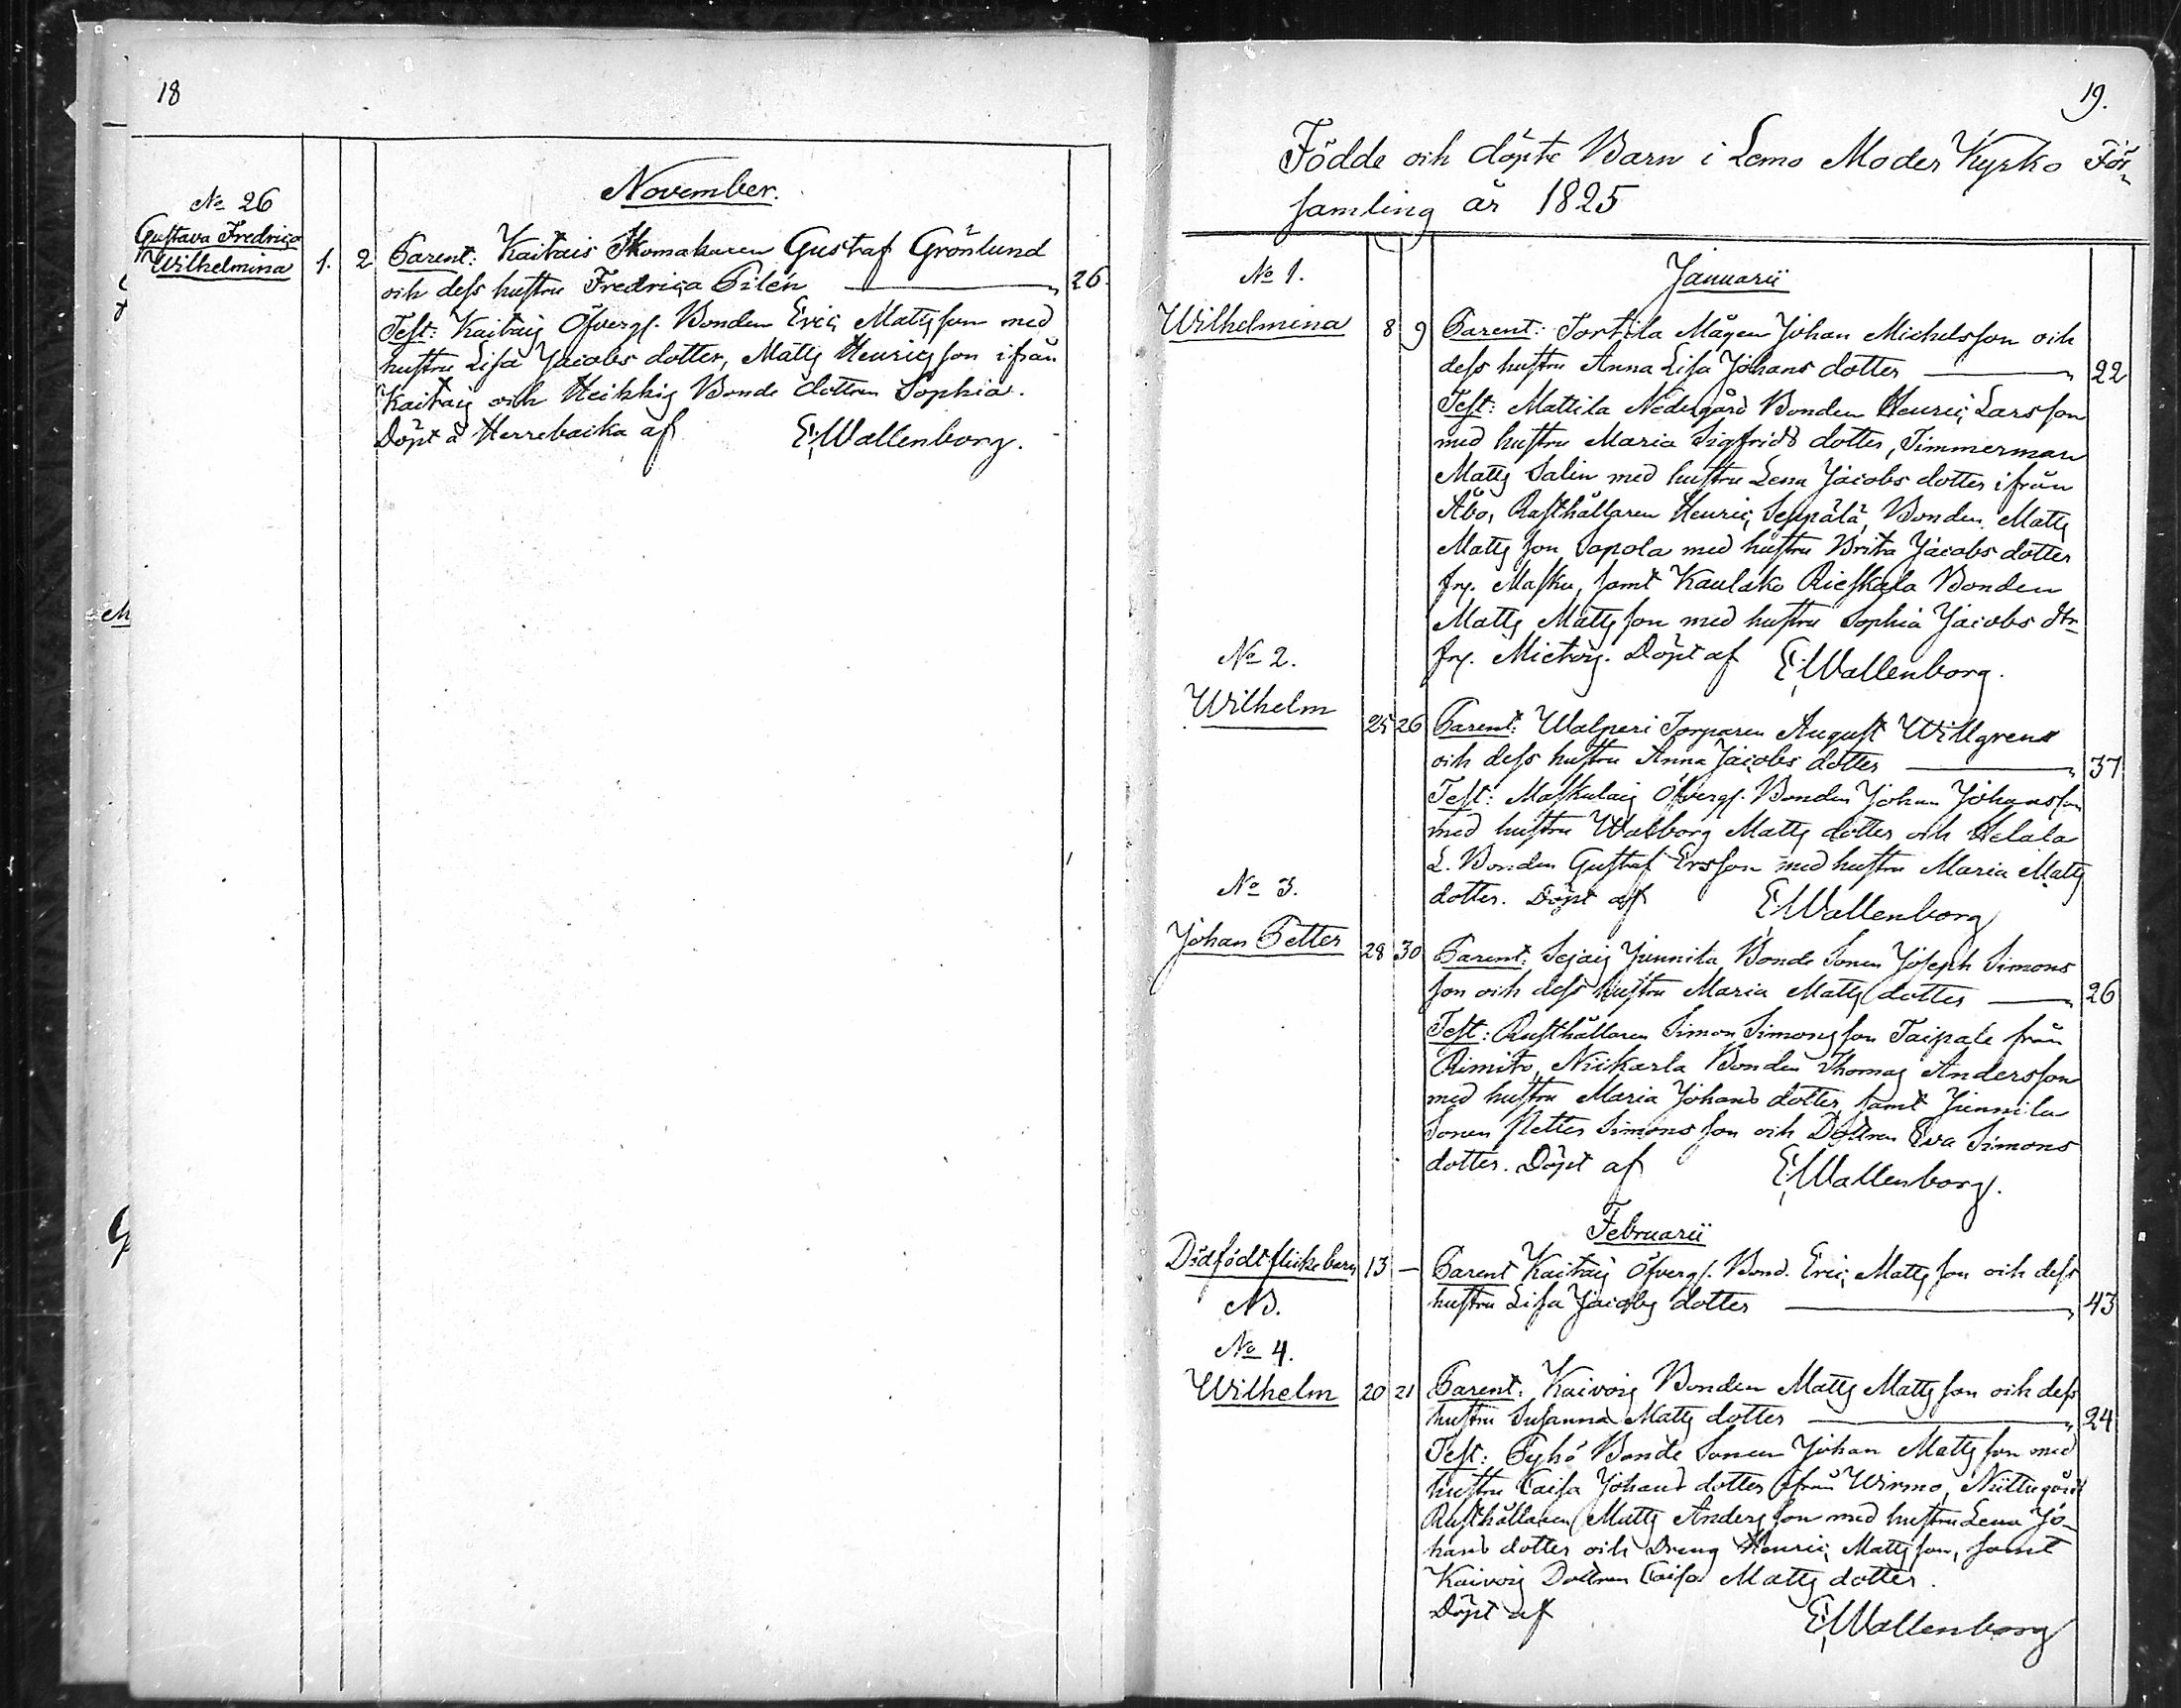 18
November.
No 26
Gustava Fredrica
Wilhelmina 1. 2 Parent: Kaitais Skomakaren Gustaf Grönlund
och dess hustru Fredrica Pilén — " 26.
Test: Kaitais Öfvergs. Bonden Eric Mattsson med
hustru Lisa Jacobs dotter, Matts Henricsson ifrån
Kaitais och Heikkis Bonde dottren Sophia.
Döpt å Herrebacka af E: Wallenborg.
19.
Födde och döpte Barn i Lemo Moder Kyrko För-
samling år 1825
Januarii
No 1.
Wilhelmina 8 9 Parent: Tortila Mågen Johan Michelsson och
dess hustru Anna Lisa Johans dotter — " 22
Test: Mattila Nedergård Bonden Henric Larsson
med hustru Maria Sigfrids dotter, Timmerman
Matts Salin med hustru Lena Jacobs dotter ifrån
Åbo, Rusthållaren Henric Seppälä, Bonden Matts
Matts son Sapola med hustru Brita Jacobs dotter
frn. Masku, samt Kaulako Rieskala Bonden
Matts Matts son med hustru Sophia Jacobs dtr
frn. Mietois. Döpt af E: Wallenborg.
No 2.
Wilhelm 25 26 Parent: Walperi Torparen August Willgren
och dess hustru Anna Jacobs dotter — " 37
Test: Maskulais Öfvergs. Bonden Johan Johansson
med hustru Walborg Matts dotter och Helala
L. Bonden Gustaf Ersson med hustru Maria Matts
dotter. Döpt af E: Wallenborg
No 3.
Johan Petter 28 30 Parent: Sejais Junnila Bonde Sonen Joseph Simons
son och dess hustru Maria Matts dotter — " 26
Test: Rusthållaren Simon Simonsson Taipale från
Rimito, Niikarla Bonden Thomas Andersson
med hustru Maria Johans dotter, samt Junnila
Sonen Petter Simons son och Dottren Eva Simons
dotter. Döpt af E: Wallenborg.
Februarii
Dödfödt flickebarn 13 — Parent Kaitais Öfvergs. Bond. Eric Matts son och dess
NB. hustru Lisa Jacobs dotter — " 43
No 4.
Wilhelm 20 21 Parent: Kaivois Bonden Matts Matts son och dess
hustru Susanna Matts dotter — " 24
Test: Pyhö Bonde Sonen Johan Matts son med
hustru Caisa Johans dotter ifrån Wirmo, Niittugård
Rusthållaren Matts Anders son med hustru Lena Jo-
hans dotter och Dreng Henric Matts son, samt
Kaivois Dottren Caisa Matts dotter.
Döpt af E: Wallenborg